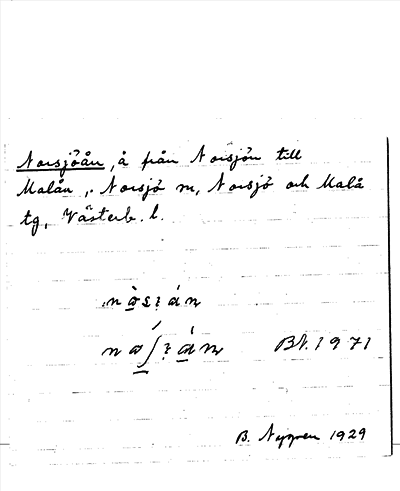 Norsjöån, å från Norsjön till
Malån, Norsjö sn, Norsjö och Malå
tg, Västerb. l.
BN. 1971
B. Nygren 1929